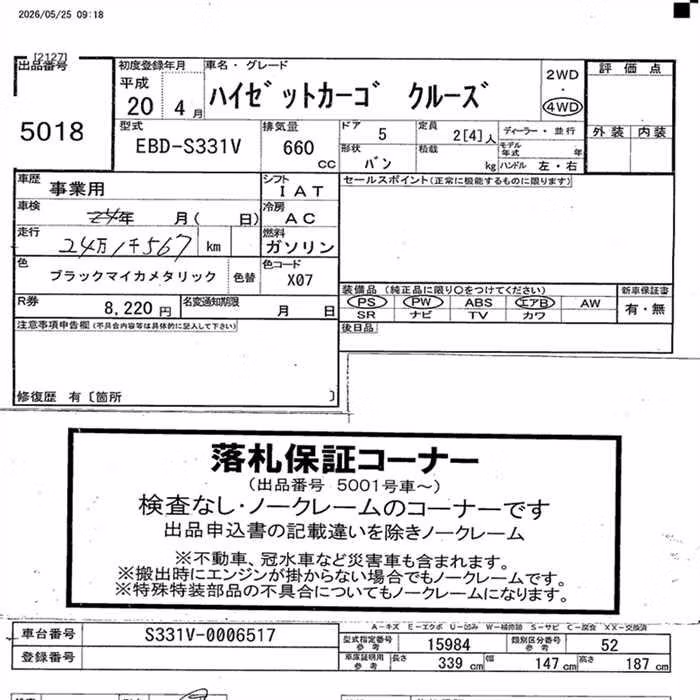 2026/05/25 09:18
[2127]
出品番号
5018
初度登録年月
平成
20 4月
車名・グレード
ハイゼットカーゴ クルーズ
2WD
・
4WD
評価点
外装 内装
型式
EBD-S331V
排気量
660
cc
ドア
5
定員
2[4]人
ディーラー・並行
形状
バン
積載
kg
モデル
年式
年
ハンドル 左・右
車歴
事業用
シフト
IAT
セールスポイント(正常に機能するものに限ります)
車検
年 月( 日)
冷房
AC
走行
24万1千567 km
燃料
ガソリン
色
ブラックマイカメタリック
色替
色コード
X07
装備品(純正品に限り〇をつけてください)
新車保証書
PS PW ABS エアB AW
SR ナビ TV カワ
有・無
R券
8,220円
名変通知期限
月 日
後日品
注意事項申告欄(不具合内容等は具体的に記入して下さい)
修復歴 有〔箇所 〕
落札保証コーナー
(出品番号 5001号車~)
検査なし・ノークレームのコーナーです
出品申込書の記載違いを除きノークレーム
※不動車、冠水車など災害車も含まれます。
※搬出時にエンジンが掛からない場合でもノークレームです。
※特殊特装部品の不具合についてもノークレームになります。
A-キズ E-エクボ U-凹み W-補修跡 S-サビ C-腐食 XX-交換済
車台番号
S331V-0006517
型式指定番号
参考
15984
類別区分番号
参考
52
登録番号
車庫証明用
参考
長さ
339 cm
幅
147 cm
高さ
187 cm